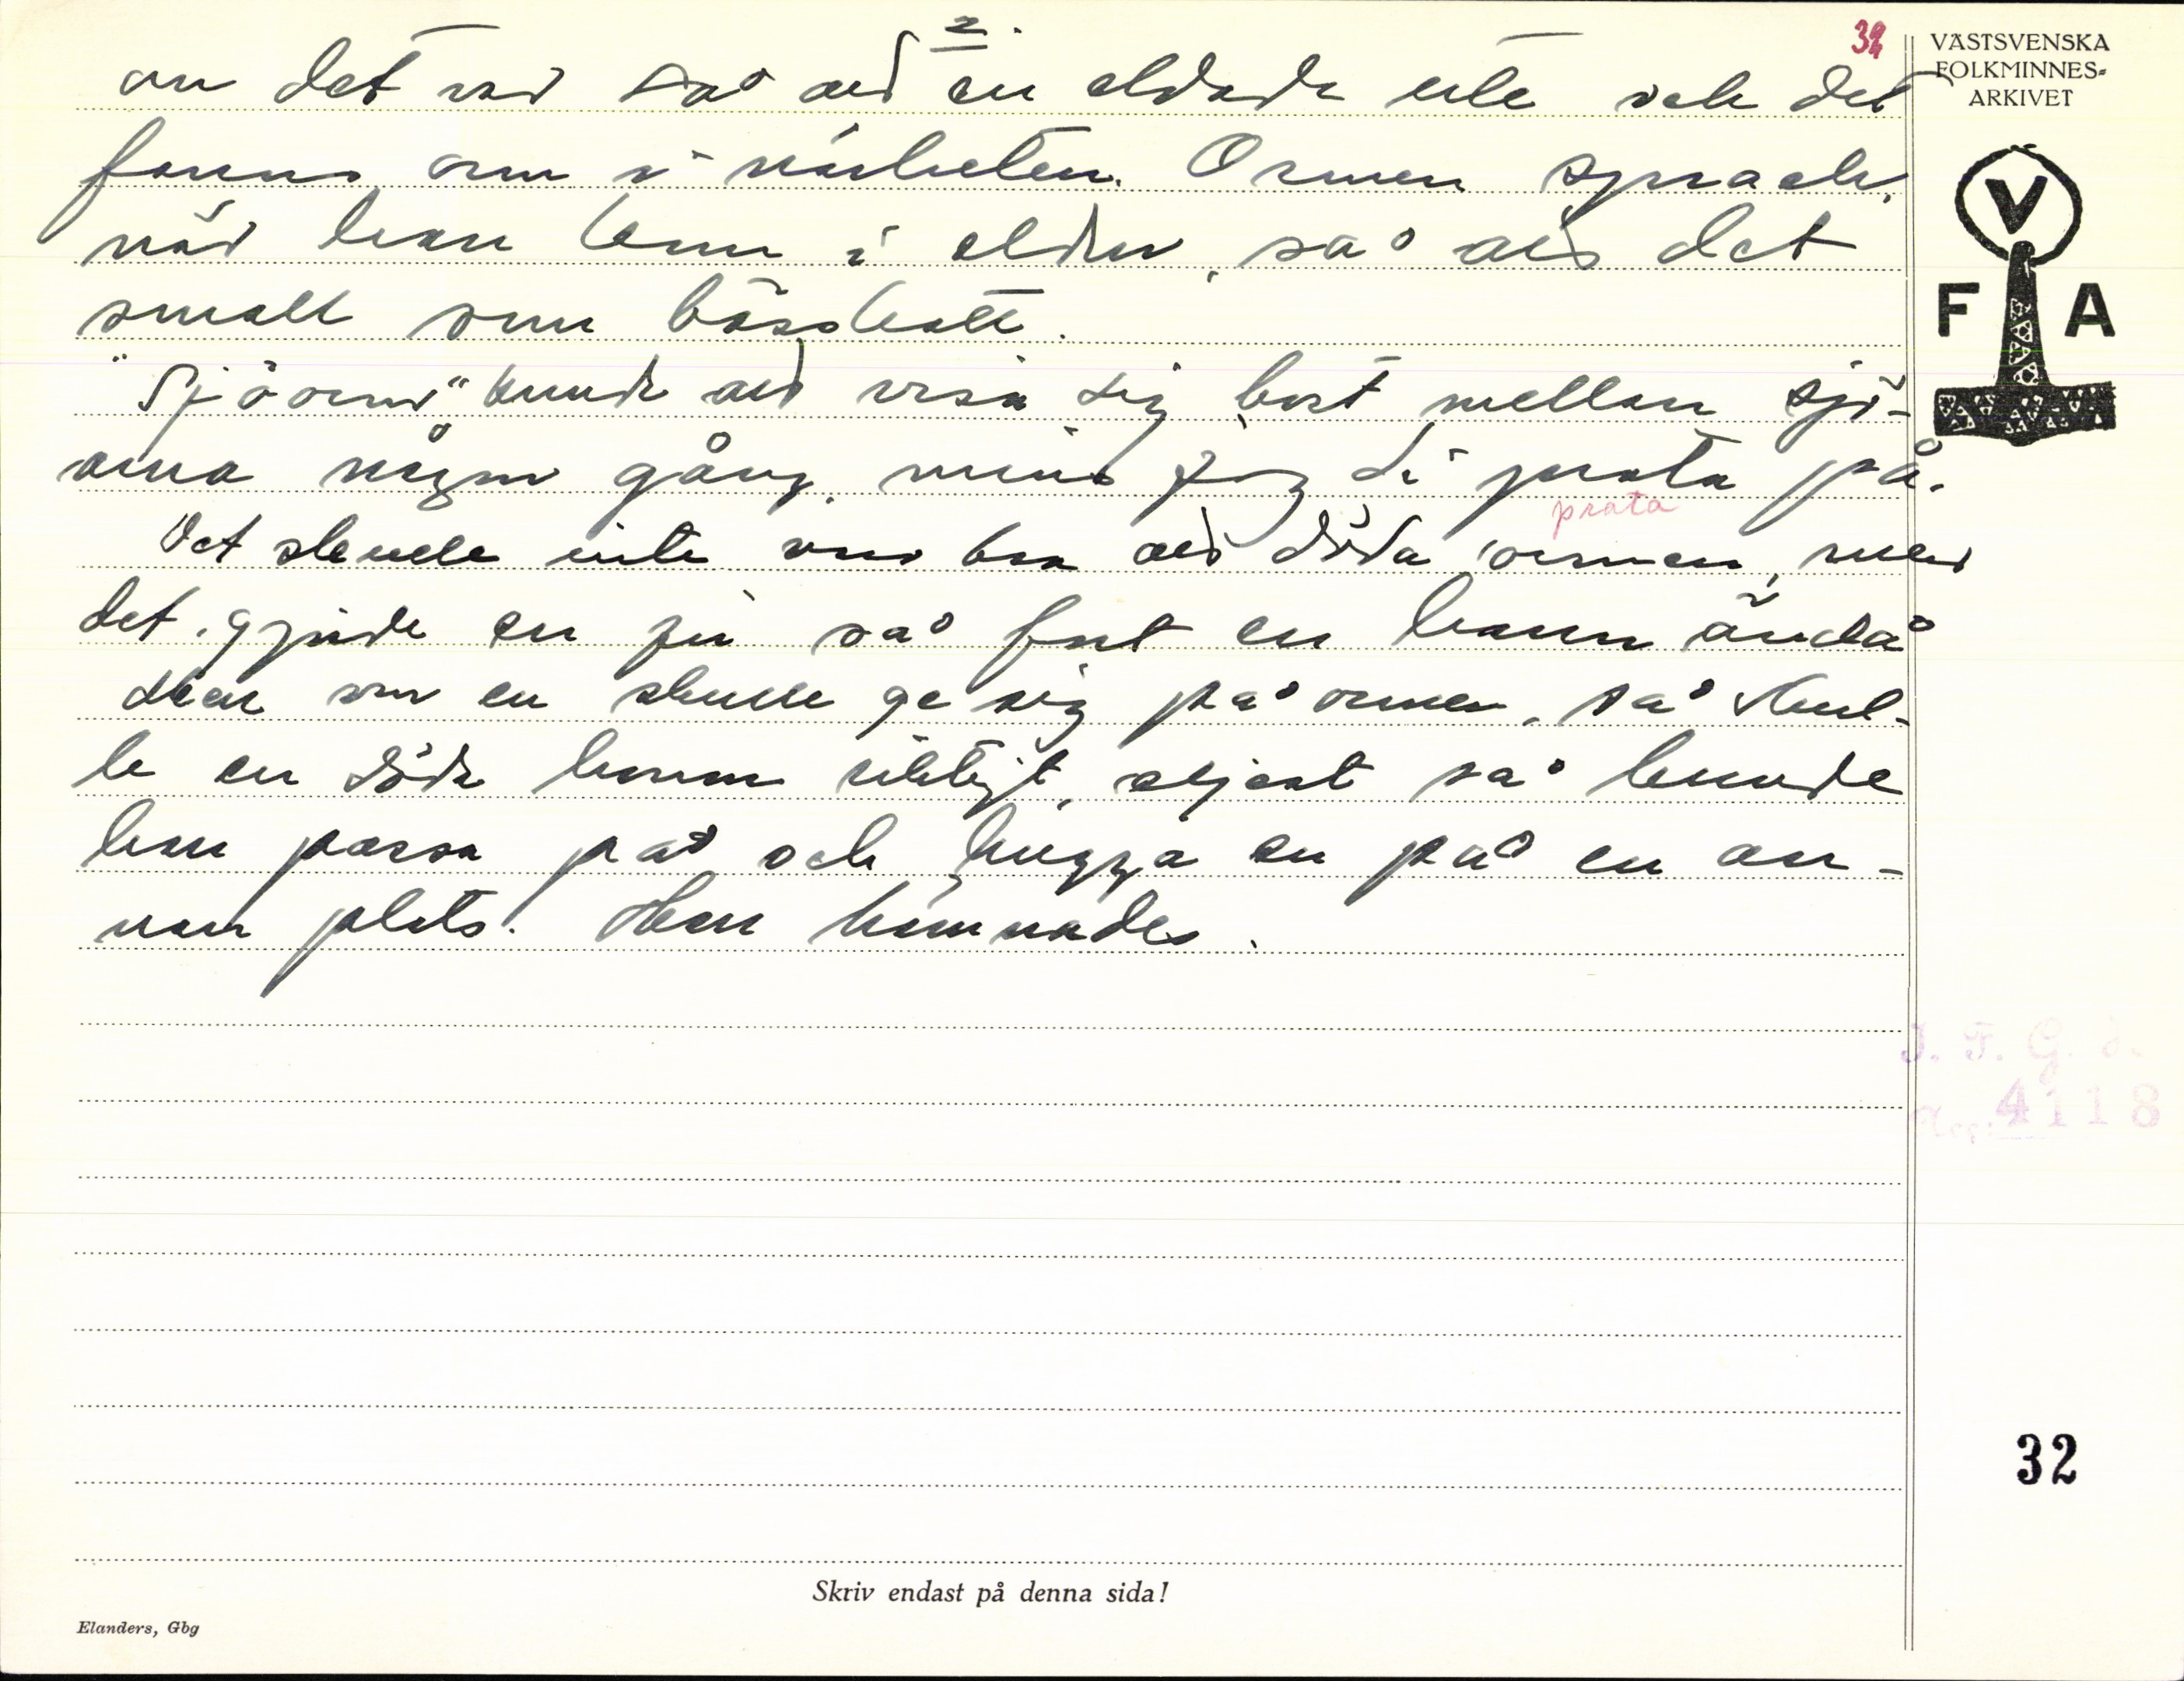 2.
32
om det var så att en eldade ute och det
fanns orm i närheten. Ormen sprack,
när han kom i elden, så att det
small som bösskott.
"Sjöorm" kunde att visa sig bort mellan sjö-
arna någon gång, mins jag di prata på.
prata
Det skulle inte vara bra att döda ormen, men
det gjorde en ju så fort en hann ändå
Men om en skulle ge sig på ormen, så skul-
le en döda honom riktigt, aljest så kunde
han passa på och hugga en på en an-
nan plats. Han hämnades.
VÄSTSVENSKA
FOLKMINNES-
ARKIVET
V
F A
I. F. G. H.
4118
32
Skriv endast på denna sida!
Elanders, Gbg